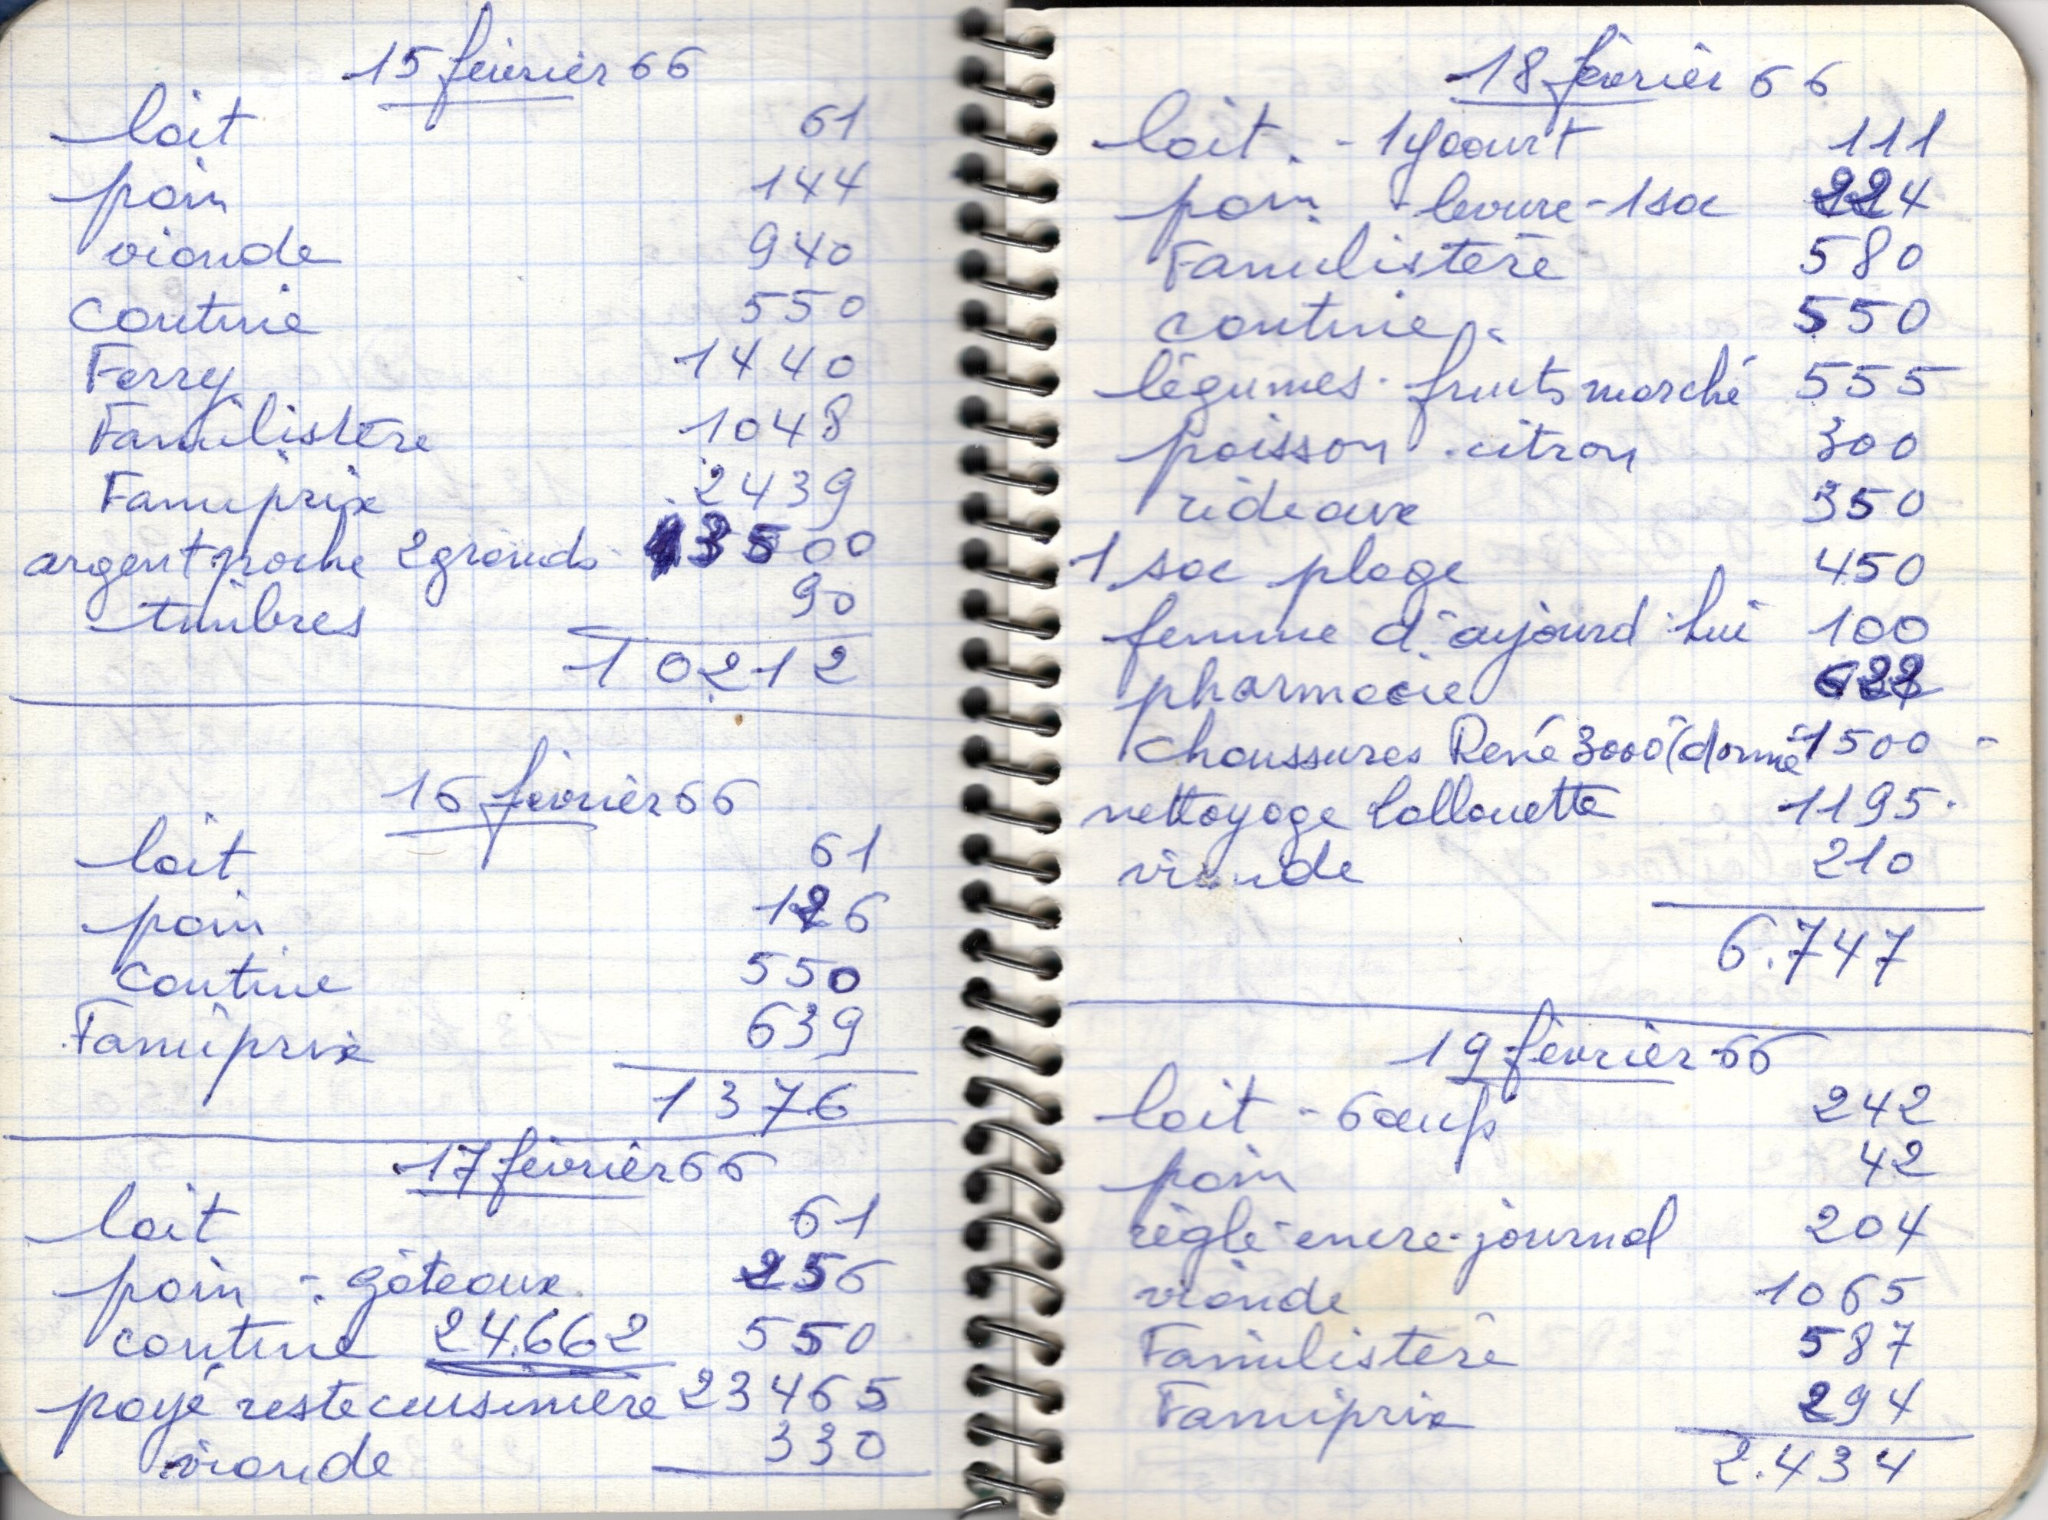 15 février 66
lait 61
pain 144
viande 940
cantine 550
Ferry 1440
Familistère 1048
Famiprix 2439
argent poche 2 grands 3500
timbres 90
10212
16 février 66
lait 61
pain 126
cantine 550
Famiprix 639
1376
17 février 66
lait 61
pain - gâteaux 256
cantine 24.662 550
payé reste cuisinière 23465
viande 330
18 février 66
lait - 1 yaourt 111
pain - levure - 1 sac 224
Familistère 580
cantine 550
légumes - fruits marché 555
poisson - citron 300
rideaux 350
1 sac plage 450
femme d'aujourd'hui 100
pharmacie 622
chaussures René 3000 (donné 1500 -
nettoyage Lallouette 1195
viande 210
6.747
19 février 66
lait - 6 œufs 242
pain 42
règle - encre - journal 204
viande 1065
Familistère 587
Famiprix 294
2.434